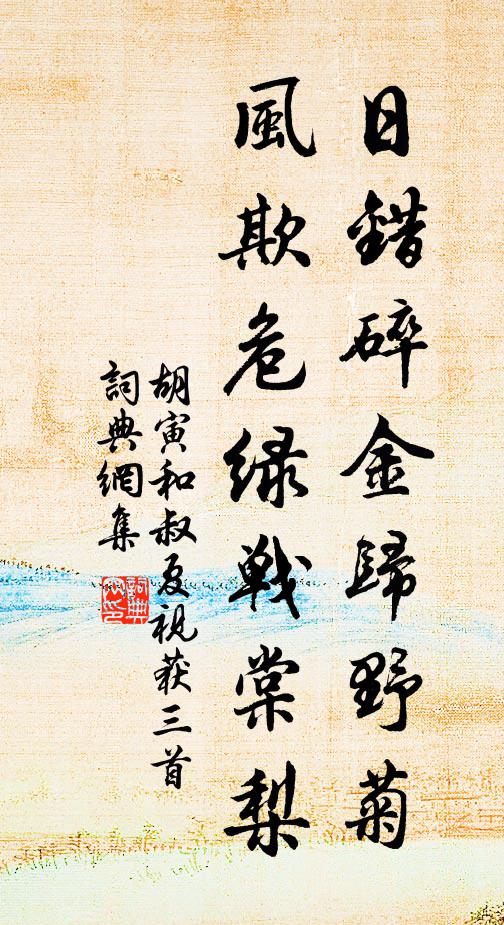 日錯碎金歸野菊
風欺危绿戰棠梨
胡寅和叔夏視获三首
詞典網集